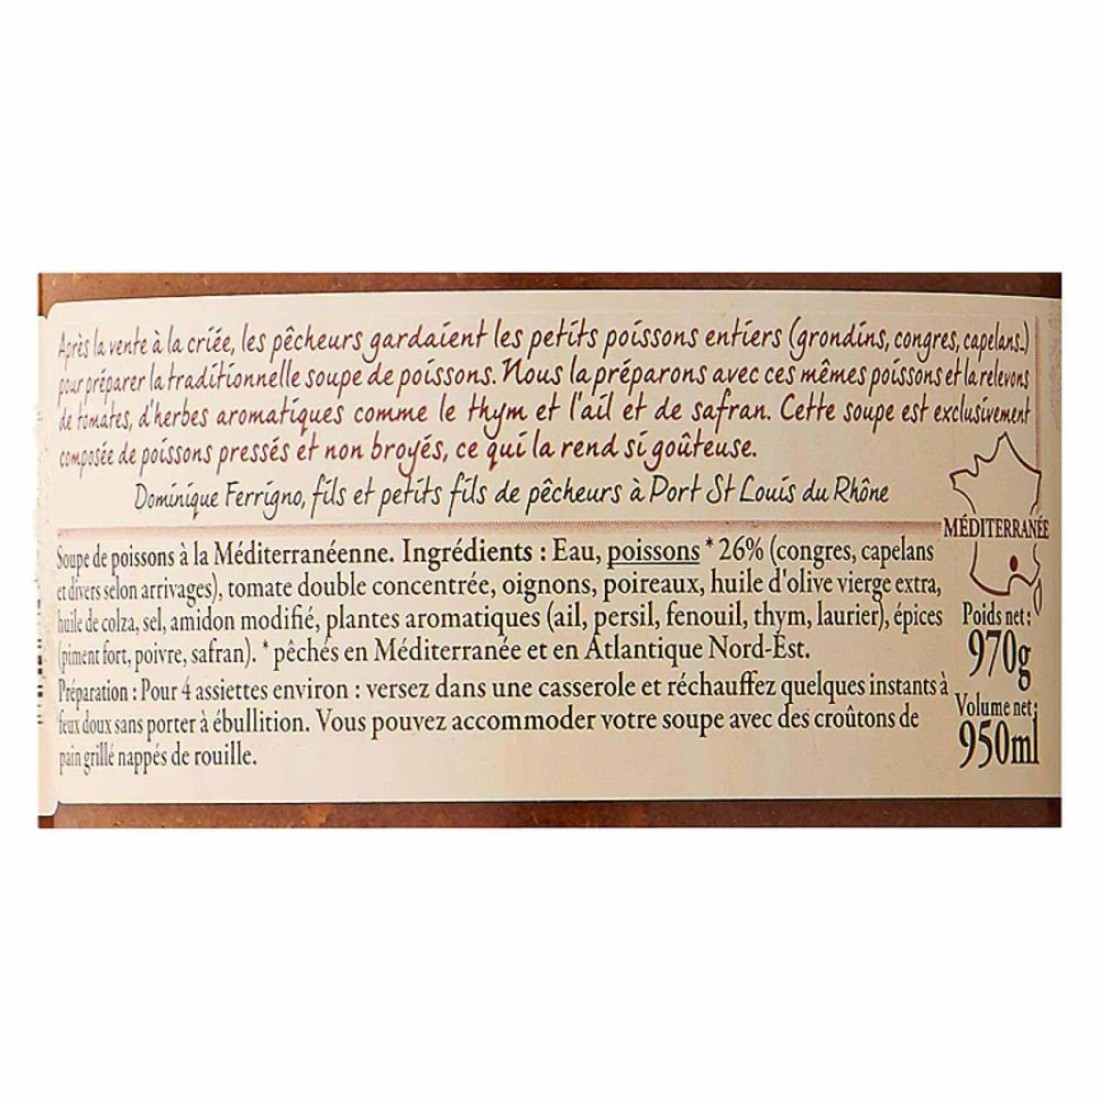 Après la vente à la criée, les pêcheurs gardaient les petits poissons entiers (grondins, congres, capelans..)
pour préparer la traditionnelle soupe de poissons. Nous la préparons avec ces mêmes poissons et la relevons
de tomates, d'herbes aromatiques comme le thym et l'ail et de safran. Cette soupe est exclusivement
composée de poissons pressés et non broyés, ce qui la rend si goûteuse.
Dominique Ferrigno, fils et petits fils de pêcheurs à Port St Louis du Rhône
MÉDITERRANÉE
Soupe de poissons à la Méditerranéenne. Ingrédients : Eau, poissons * 26% (congres, capelans
et divers selon arrivages), tomate double concentrée, oignons, poireaux, huile d'olive vierge extra,
huile de colza, sel, amidon modifié, plantes aromatiques (ail, persil, fenouil, thym, laurier), épices
(piment fort, poivre, safran). * pêchés en Méditerranée et en Atlantique Nord-Est.
Préparation : Pour 4 assiettes environ : versez dans une casserole et réchauffez quelques instants à
feux doux sans porter à ébullition. Vous pouvez accommoder votre soupe avec des croûtons de
pain grillé nappés de rouille.
Poids net :
970g
Volume net :
950ml